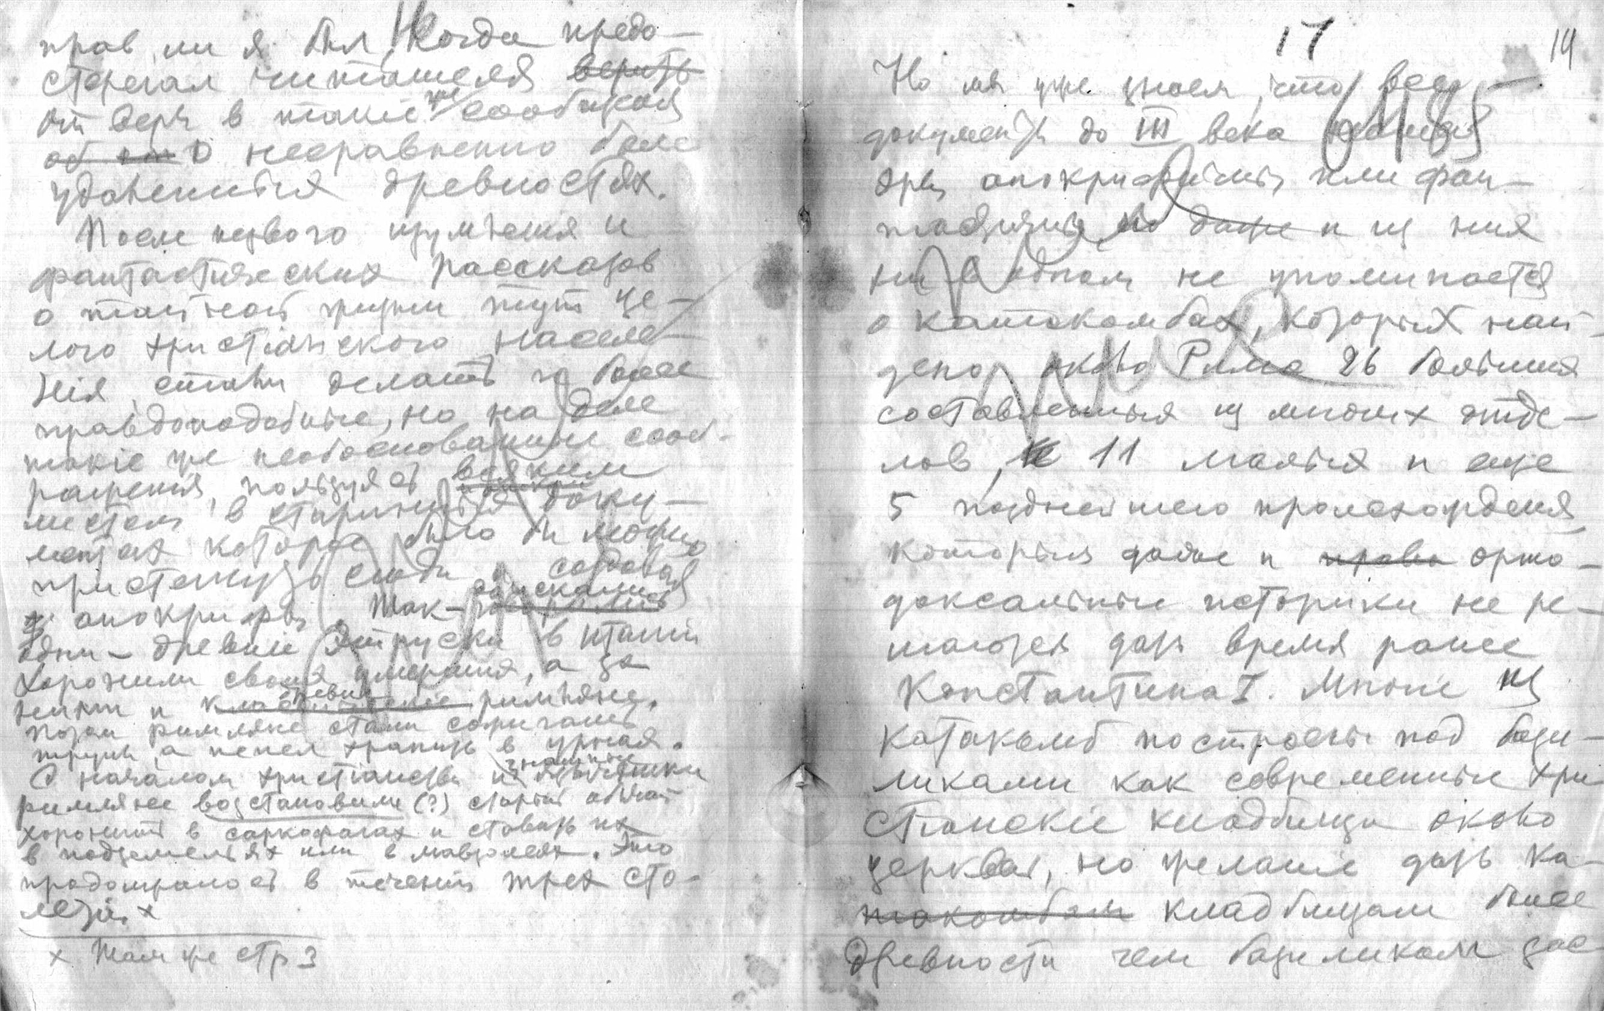 прав ли я был, когда предо-
стерегал читателя верить
от веры в такие же сообщения
об о несравненно более
удаленных древностях.
После первого изумления и
фантастических рассказов
о тайной жизни тут це-
лого христіанского населе-
нія, стали делать более
правдоподобные, но на деле
такіе же необоснованные сооб-
ражения, пользуясь всяким
местом в старинных доку-
ментах которое было бы можно
притянуть сюда и создавая
апокрифы. Так
одни древніе Этруски в Италии
хоронили своих умерших, а за
ними и древние римляне.
Потом римляне стали сожигать
трупы, а пепел хранить в урнах.
С началом христіанства знатные
римляне возстановили (?) старый обычай
хоронить в саркофагах и ставить их
в подземельях или в мавзолеях. Это
продолжалось в течении трех сто-
летій. x
x Там же стр 3
17
14
Но мы уже знаем, что все
документы до III века
апокрифичны или фан-
тастичны, но даже и из них
ни в одном не упоминается
о катакомбах, которых най-
дено около Рима 26 больших
составленных из многих отде-
лов, 11 малых и еще
5 позднейшего происхождения,
которым даже и право орто-
доксальные историки не ре-
шаются дать время ранее
Константина I. Многие из
катакомб построены под бази-
ликами как современные хри-
стіанскіе кладбища около
церквей, но желаніе дать ка-
такомбам кладбищам более
древности чем базиликам зас-